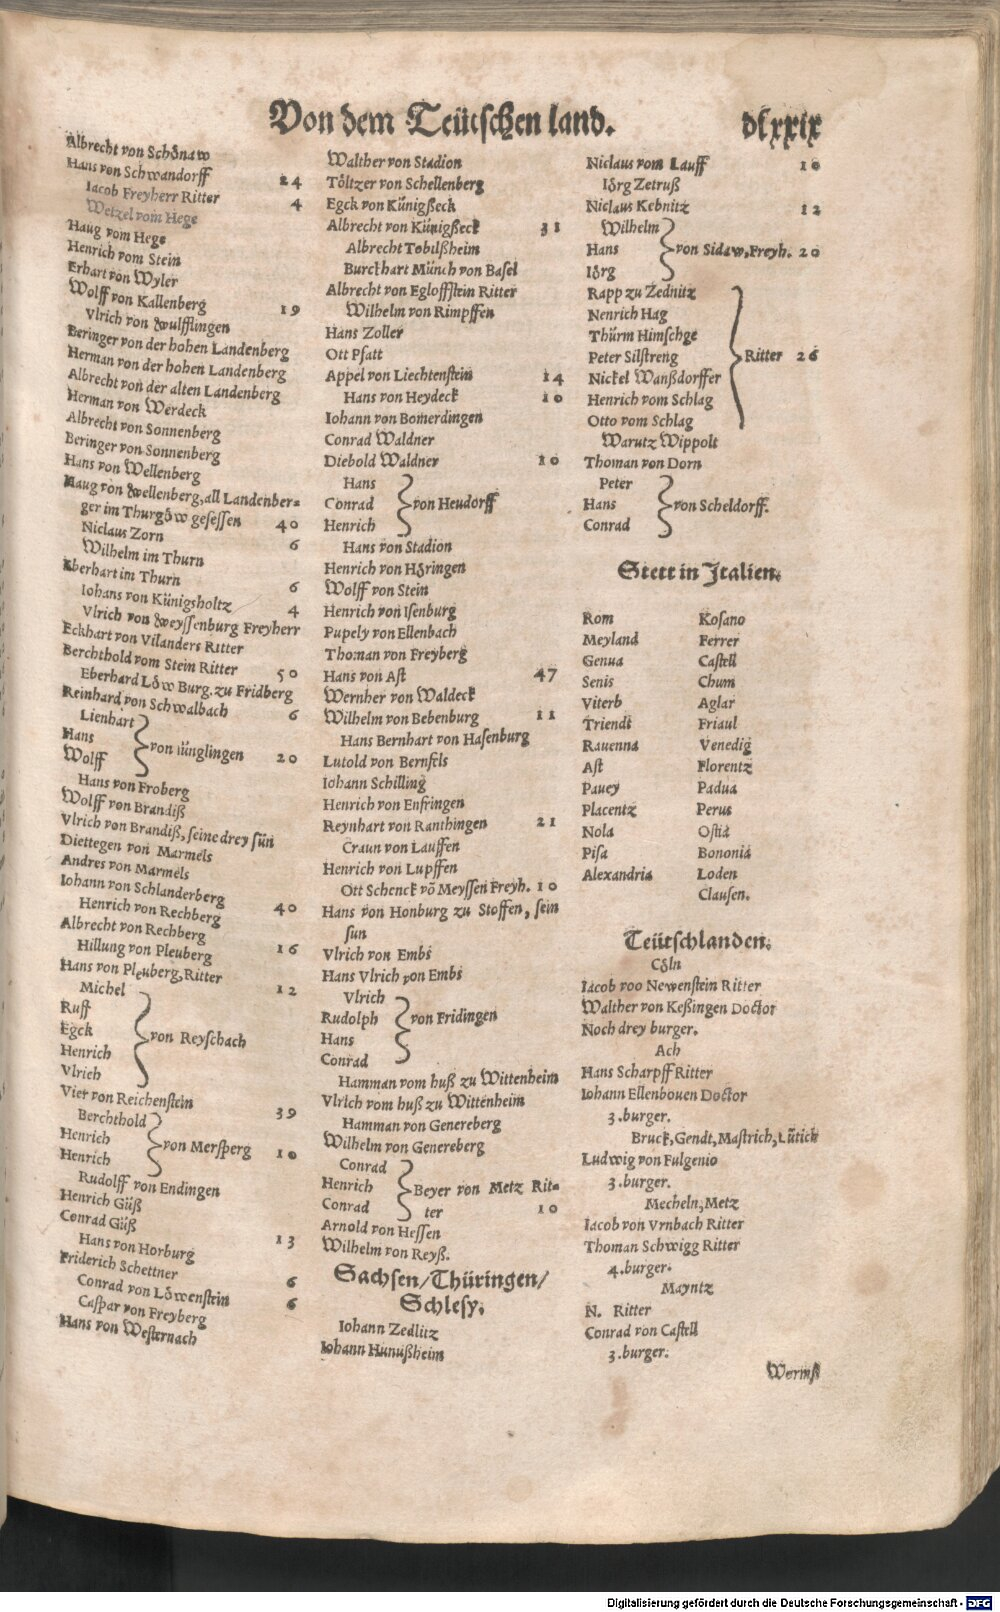 Von dem Teütschen land. dlxxix
Albrecht von Schönaw
Hans von Schwandorff 24
Iacob Freyherr Ritter 4
Wetzel vom Hege
Haug vom Hege
Henrich vom Stein
Erhart von Wyler
Wolff von Kallenberg 19
Vlrich von Wulfflingen
Beringer von der hohen Landenberg
Herman von der hohen Landenberg
Albrecht von der alten Landenberg
Herman von Werdeck
Albrecht von Sonnenberg
Beringer von Sonnenberg
Hans von Wellenberg
Haug von Wellenberg, all Landenber=
ger im Thurgöw gesessen 40
Niclaus Zorn 6
Wilhelm im Thurn
Eberhart im Thurn 6
Iohans von Künigsholtz 4
Vlrich von Weyssenburg Freyherr
Eckhart von Vilanders Ritter
Berchthold vom Stein Ritter 50
Eberhard Löw Burg. zu Fridberg
Reinhard von Schwalbach 6
Lienhart
Hans von Iünglingen 20
Wolff
Hans von Froberg
Wolff von Brandiß
Vlrich von Brandiß, seine drey sün
Diettegen von Marmels
Andres von Marmels
Iohann von Schlanderberg
Henrich von Rechberg 40
Albrecht von Rechberg
Hillung von Pleuberg 16
Hans von Pleuberg, Ritter
Michel 12
Ruff
Egck von Reyschach
Henrich
Vlrich
Vier von Reichenstein
Berchthold 39
Henrich von Mersperg 10
Henrich
Rudolff von Endingen
Henrich Güß
Conrad Güß
Hans von Horburg 13
Friderich Schettner
Conrad von Löwenstein 6
Caspar von Freyberg 6
Hans von Westernach
Walther von Stadion
Töltzer von Schellenberg
Egck von Künigßeck
Albrecht von Künigßeck 31
Albrecht Tobilßheim
Burckhart Münch von Basel
Albrecht von Egloffstein Ritter
Wilhelm von Rimpffen
Hans Zoller
Ott Pfatt
Appel von Liechtenstein 14
Hans von Heydeck 10
Iohann von Bomerdingen
Conrad Waldner
Diebold Waldner 10
Hans
Conrad von Heudorff
Henrich
Hans von Stadion
Henrich von Höringen
Wolff von Stein
Henrich von Isenburg
Pupely von Ellenbach
Thoman von Freyberg
Hans von Ast 47
Wernher von Waldeck
Wilhelm von Bebenburg 11
Hans Bernhart von Hasenburg
Lutold von Bernfels
Iohann Schilling
Henrich von Enfringen
Reynhart von Ranthingen 21
Craun von Lauffen
Henrich von Lupffen
Ott Schenck võ Meyssen Freyh. 10
Hans von Honburg zu Stoffen, sein
sun
Vlrich von Embs
Hans Vlrich von Embs
Vlrich
Rudolph von Fridingen
Hans
Conrad
Hamman vom huß zu Wittenheim
Vlrich vom huß zu Wittenheim
Hamman von Genereberg
Wilhelm von Genereberg
Conrad
Henrich Beyer von Metz Rit=
Conrad ter 10
Arnold von Hessen
Wilhelm von Reyß.
Sachsen/Thüringen/
Schlesy.
Iohann Zedlitz
Iohann Hunußheim
Niclaus vom Lauff 10
Iörg Zetruß
Niclaus Kebnitz 12
Wilhelm
Hans von Sidaw, Freyh. 20
Iörg
Rapp zu Zednitz
Nenrich Hag
Thürm Himschge
Peter Silstreng Ritter 26
Nickel Wanßdorffer
Henrich vom Schlag
Otto vom Schlag
Warutz Wippolt
Thoman von Dorn
Peter
Hans von Scheldorff.
Conrad
Stett in Italien.
Rom Kosano
Meyland Ferrer
Genua Castell
Senis Chum
Viterb Aglar
Triendt Friaul
Rauenna Venedig
Ast Florentz
Pauey Padua
Placentz Perus
Nola Ostia
Pisa Bononia
Alexandria Loden
Clausen.
Teütschlanden.
Cöln
Iacob voo Newenstein Ritter
Walther von Keßingen Doctor
Noch drey burger.
Ach
Hans Scharpff Ritter
Iohann Ellenbouen Doctor
3. burger.
Bruck, Gendt, Mastrich, Lütich
Ludwig von Fulgenio
3. burger.
Mecheln, Metz
Iacob von Vrnbach Ritter
Thoman Schwigg Ritter
4. burger.
Mayntz
N. Ritter
Conrad von Castell
3. burger.
Wormß
Digitalisierung gefördert durch die Deutsche Forschungsgemeinschaft - DFG